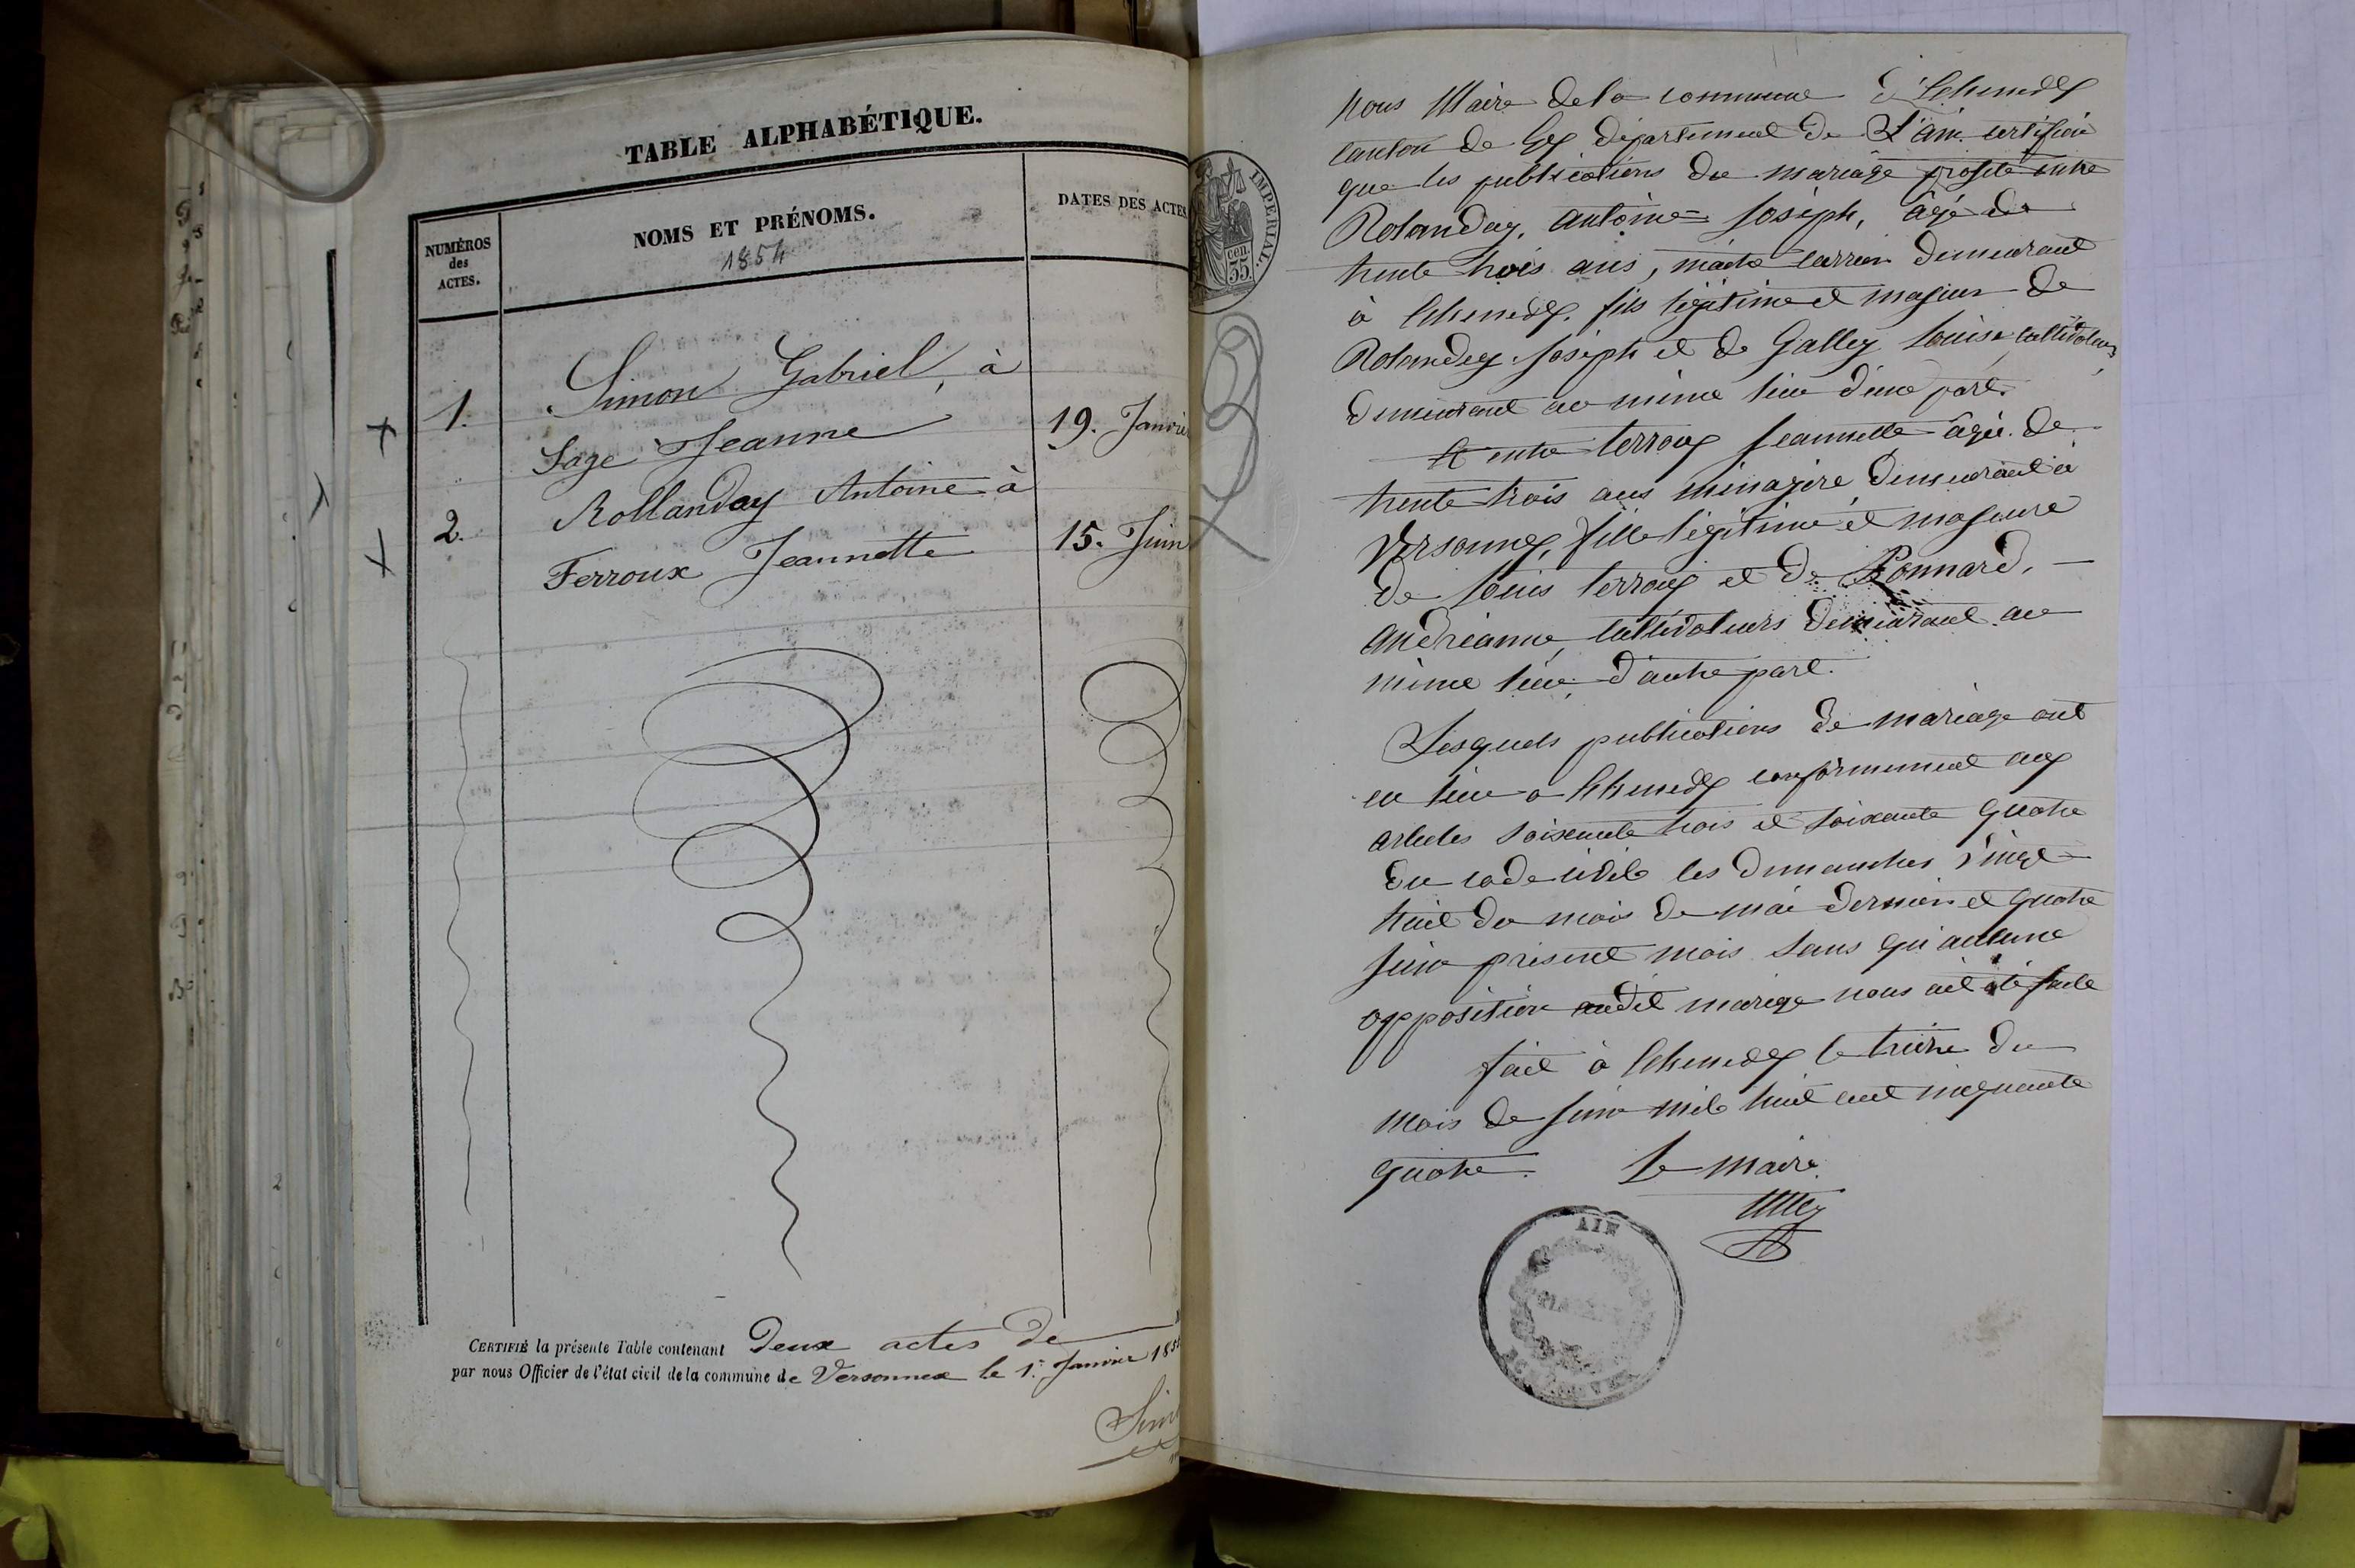 TABLE ALPHABÉTIQUE.
NUMÉROS
des
ACTES.
NOMS ET PRÉNOMS.
1854
DATES DES ACTES
1. Simon Gabriel, à
Sage Jeanne
19. Janvier
2. Rollanday Antoine à
Ferroux Jeannette
15. Juin
CERTIFIÉ la présente Table contenant Deux actes de
par nous Officier de l'état civil de la commune de Versonnex le 1. Janvier 185
IMPERIAL.
cen.
35
nous Maire de la commune d'Echenevex
canton de Gex département de L'ain certifions
que les publications du mariage projeté entre
Rolanday, antoine Joseph, âgé de
trente trois ans, demeurant
à Echenevex, fils légitime et majeur de
Rolanday Joseph et de Galley Louise cultivateurs
demeurant au même lieu d'une part.
Et entre ferroux Jeannette âgée de
trente trois ans ménagère demeurant à
Versonnex, fille légitime et majeure
de Louis ferroux et de Ponnard,
andréanne, cultivateurs demeurant au
même lieu, d'autre part.
Lesquels publications de mariage ont
eu lieu a Echenevex conformement aux
articles soixante trois et soixante quatre
du code civile les dimanches vingt
huit du mois de mai dernier et quatre
juin présent mois sans qu'aucune
opposition audit mariage nous ait été faite
fait à Echenevex le treize du
mois de juin mile huit cent cinquante
quatre. Le maire
AIN